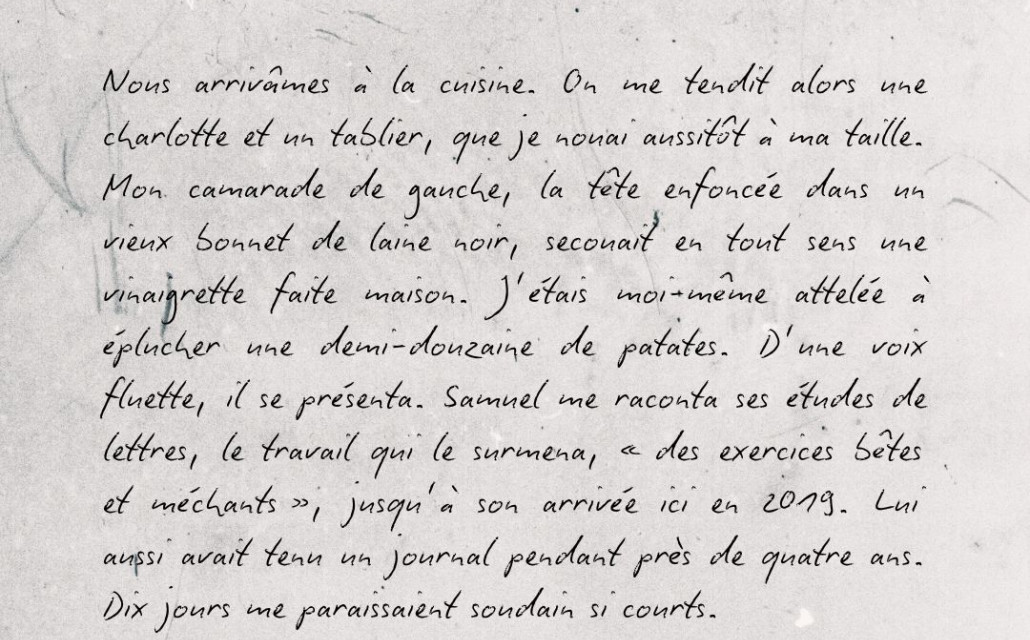 Nous arrivâmes à la cuisine. On me tendit alors une
charlotte et un tablier, que je nouai aussitôt à ma taille.
Mon camarade de gauche, la tête enfoncée dans un
vieux bonnet de laine noir, secouait en tout sens une
vinaigrette faite maison. J'étais moi-même attelée à
éplucher une demi-douzaine de patates. D'une voix
fluette, il se présenta. Samuel me raconta ses études de
lettres, le travail qui le surmena, « des exercices bêtes
et méchants », jusqu'à son arrivée ici en 2019. Lui
aussi avait tenu un journal pendant près de quatre ans.
Dix jours me paraissaient soudain si courts.